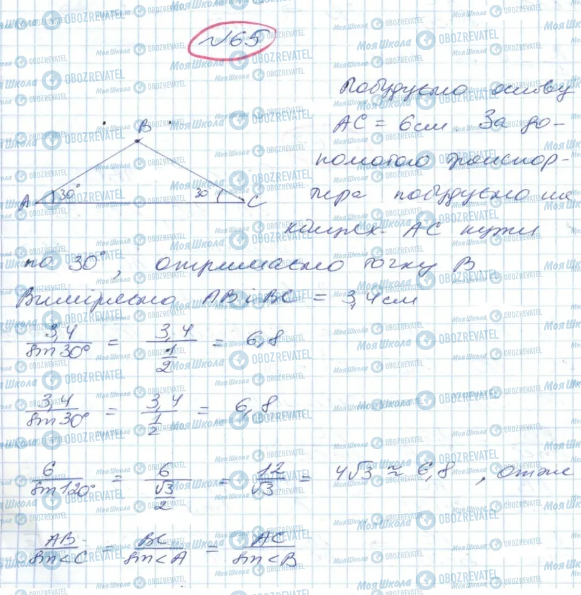 №65
Побудуємо основу
AC = 6см. За до-
помогою транспор-
тира побудуємо на
кінцях AC кути
B
A 30° 30 C
по 30°, отримаємо точку B
Виміряємо AB і BC = 3,4см
3,4/sin30° = 3,4/(1/2) = 6,8
3,4/sin30° = 3,4/(1/2) = 6,8
6/sin120° = 6/(√3/2) = 12/√3 = 4√3 ≈ 6,8, отже
AB/sin<C = BC/sin<A = AC/sin<B
Моя Школа
OBOZREVATEL